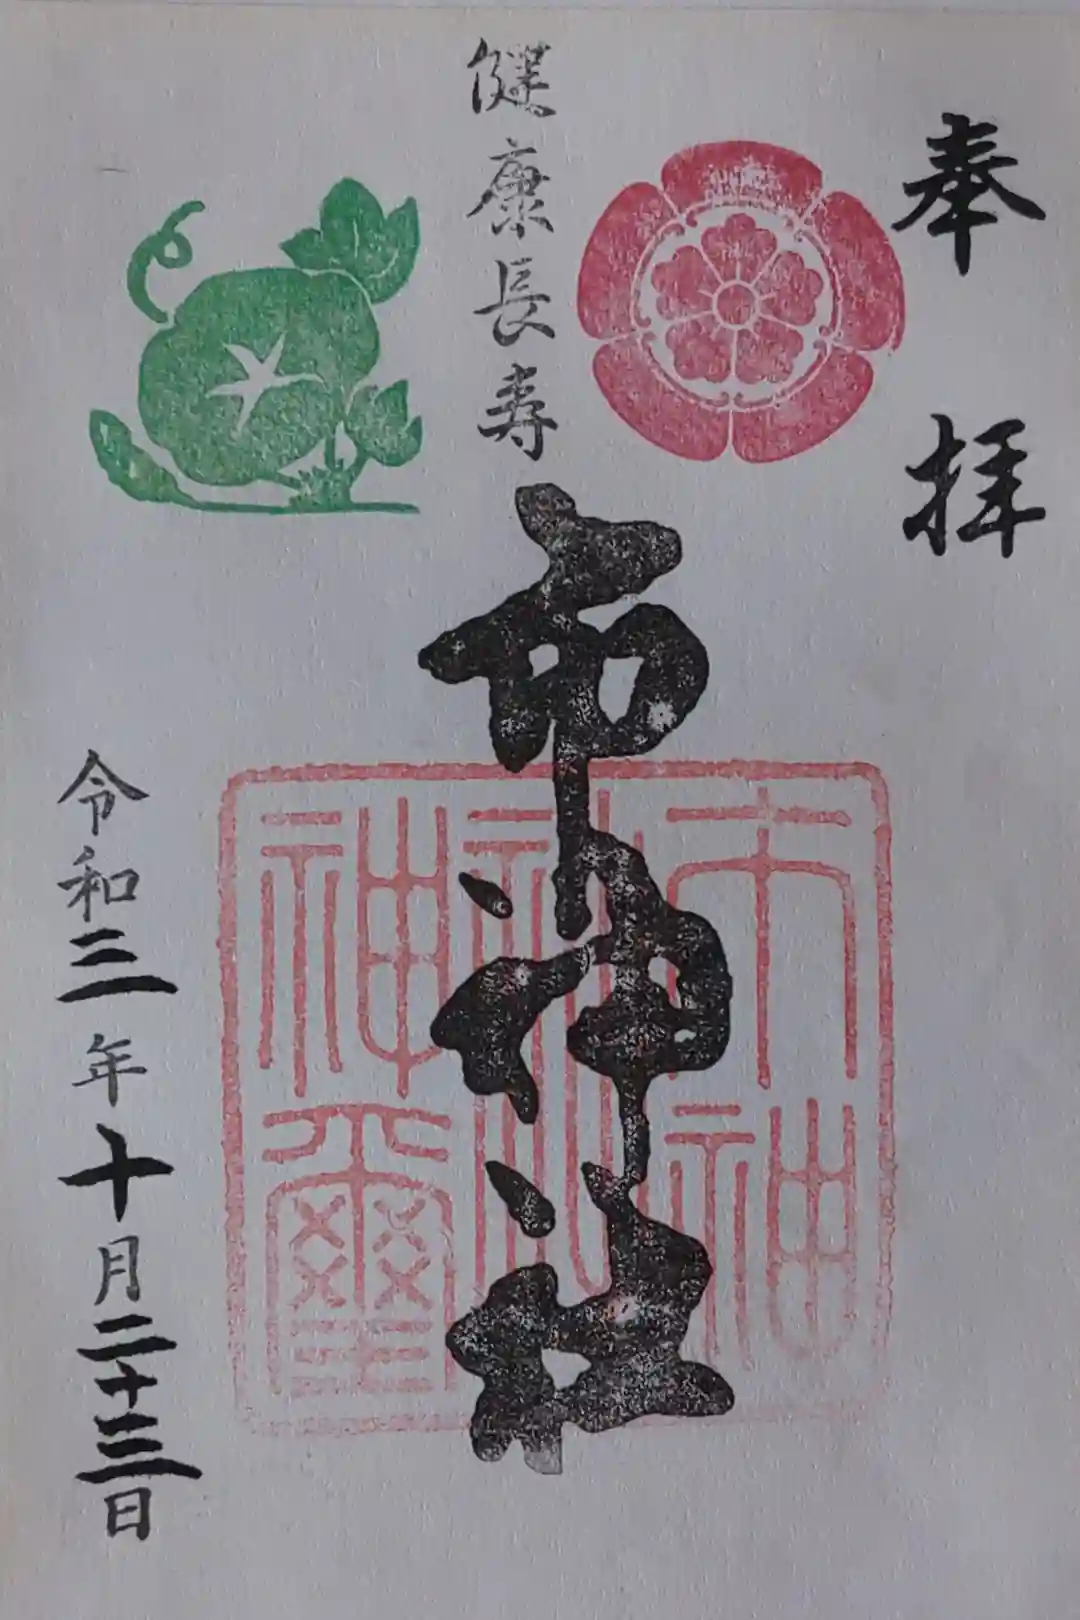 奉拝
健康長寿
市神社
市神
神社
神璽
令和三年十月二十三日